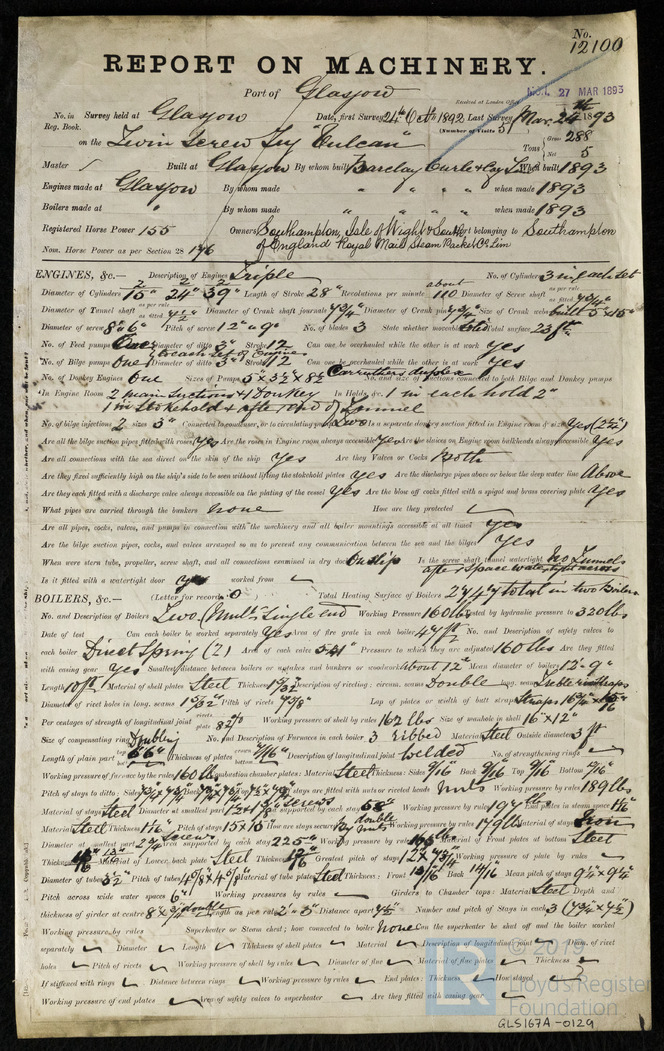 No.
12100
REPORT ON MACHINERY.
Port of Glasgow
Received at London Office MON. 27 MAR 1893
No. in Survey held at Glasgow Date, first Survey 24th Octr 1892 Last Survey Mar. 24th 1893
Reg. Book. (Number of Visits )
on the Twin Screw Tug "Vulcan" Tons Gross 288 Net 5
Master Built at Glasgow By whom built Barclay Curle & Coy Ld When built 1893
Engines made at Glasgow By whom made " " " when made 1893
Boilers made at " By whom made " " when made 1893
Registered Horse Power 155 Owners Southampton, Isle of Wight & South Port belonging to Southampton
Nom. Horse Power as per Section 28 146 of England Royal Mail Steam Packet Co Lim
ENGINES, &c.— Description of Engines Triple No. of Cylinders 3 in each set
Diameter of Cylinders 15" 24" 39" Length of Stroke 28" Revolutions per minute about 110 Diameter of Screw shaft as per rule as fitted
Diameter of Tunnel shaft as per rule as fitted Diameter of Crank shaft journals 7 3/4" Diameter of Crank pin 7 3/4" Size of Crank webs built 5 x 15"
Diameter of screw 8' 6" Pitch of screw 12' 9" No. of blades 3 State whether moveable Solid Total surface 23 ft
No. of Feed pumps One Diameter of ditto 3" Stroke 12 Can one be overhauled while the other is at work Yes
to each set of Engines
No. of Bilge pumps One Diameter of ditto 3" Stroke 12 Can one be overhauled while the other is at work Yes
No. of Donkey Engines One Sizes of Pumps 5" x 3 1/2" x 8 1/2 Carruthers duplex No. and size of Suctions connected to both Bilge and Donkey pumps
In Engine Room 2 main Suctions & 1 Donkey In Holds, &c. 1 in each hold 2"
1 in Stokehold & after end of Tunnel
No. of bilge injections 2 sizes 3" Connected to condenser, or to circulating pump Two Is a separate donkey suction fitted in Engine room & size Yes (2 1/2")
Are all the bilge suction pipes fitted with roses Yes Are the roses in Engine room always accessible Yes Are the sluices on Engine room bulkheads always accessible Yes
Are all connections with the sea direct on the skin of the ship Yes Are they Valves or Cocks Both
Are they fixed sufficiently high on the ship's side to be seen without lifting the stokehold plates Yes Are the discharge pipes above or below the deep water line Above
Are they each fitted with a discharge valve always accessible on the plating of the vessel Yes Are the blow off cocks fitted with a spigot and brass covering plate Yes
What pipes are carried through the bunkers none How are they protected
Are all pipes, cocks, valves, and pumps in connection with the machinery and all boiler mountings accessible at all times Yes
Are the bilge suction pipes, cocks, and valves arranged so as to prevent any communication between the sea and the bilges Yes
When were stern tube, propeller, screw shaft, and all connections examined in dry dock On slip Is the screw shaft tunnel watertight No Tunnels
after space watertight across
Is it fitted with a watertight door yes worked from
BOILERS, &c.— (Letter for record 0) Total Heating Surface of Boilers 2444 total in two Boilers
No. and Description of Boilers Two (Mult) Single end Working Pressure 160 lbs Tested by hydraulic pressure to 320 lbs
Date of test Can each boiler be worked separately Yes Area of fire grate in each boiler 44 ft No. and Description of safety valves to
each boiler Direct Spring (2) Area of each valve Pressure to which they are adjusted 160 lbs Are they fitted
with easing gear Yes Smallest distance between boilers or uptakes and bunkers or woodwork about 12" Mean diameter of boilers 12' 9"
Length 10 ft Material of shell plates Steel Thickness 1 3/32" Description of riveting: circum. seams Double long. seams Treble riv straps
Diameter of rivet holes in long. seams 1 5/32" Pitch of rivets 7 3/8" Lap of plates or width of butt straps Straps 16 3/4" x
Per centages of strength of longitudinal joint rivets plate 82 % Working pressure of shell by rules 162 lbs Size of manhole in shell 16" x 12"
Size of compensating ring Doubling No. and Description of Furnaces in each boiler 3 ribbed Material Steel Outside diameter 3 ft
Length of plain part top bottom 6' 6" Thickness of plates crown bottom 9/16" Description of longitudinal joint Welded No. of strengthening rings
Working pressure of furnace by the rules 160 lbs Combustion chamber plates: Material Steel Thickness: Sides 9/16 Back 9/16 Top 9/16 Bottom
Pitch of stays to ditto: Sides Back Top If stays are fitted with nuts or riveted heads Nuts Working pressure by rules 189 lbs
Material of stays Steel Diameter at smallest part screws Area supported by each stay Working pressure by rules End plates in steam space
Material Steel Thickness Pitch of stays 15 x 15" How are stays secured By double nuts Working pressure by rules 179 lbs Material of stays Iron
Diameter at smallest part Area supported by each stay 225" Working pressure by rules Material of Front plates at bottom Steel
Thickness Material of Lower, back plate Steel Thickness Greatest pitch of stays Working pressure of plate by rules
Diameter of tubes 3 1/2" Pitch of tubes 4 5/8 x 4 5/8" Material of tube plates Steel Thickness: Front 13/16" Back 14/16" Mean pitch of stays 9 1/2" x 9 1/2"
Pitch across wide water spaces 6" Working pressures by rules Girders to Chamber tops: Material Steel Depth and
thickness of girder at centre double Length as per rule 2' 3" Distance apart Number and pitch of Stays in each 3 (7 3/4" x 7 1/2")
Working pressure by rules Superheater or Steam chest; how connected to boiler None Can the superheater be shut off and the boiler worked
separately Diameter Length Thickness of shell plates Material Description of longitudinal joint Diam. of rivet
holes Pitch of rivets Working pressure of shell by rules Diameter of flue Material of flue plates Thickness
If stiffened with rings Distance between rings Working pressure by rules End plates: Thickness How stayed
Working pressure of end plates Area of safety valves to superheater Are they fitted with easing gear
© 2019
Lloyd's Register
Foundation
GLS167A-0129